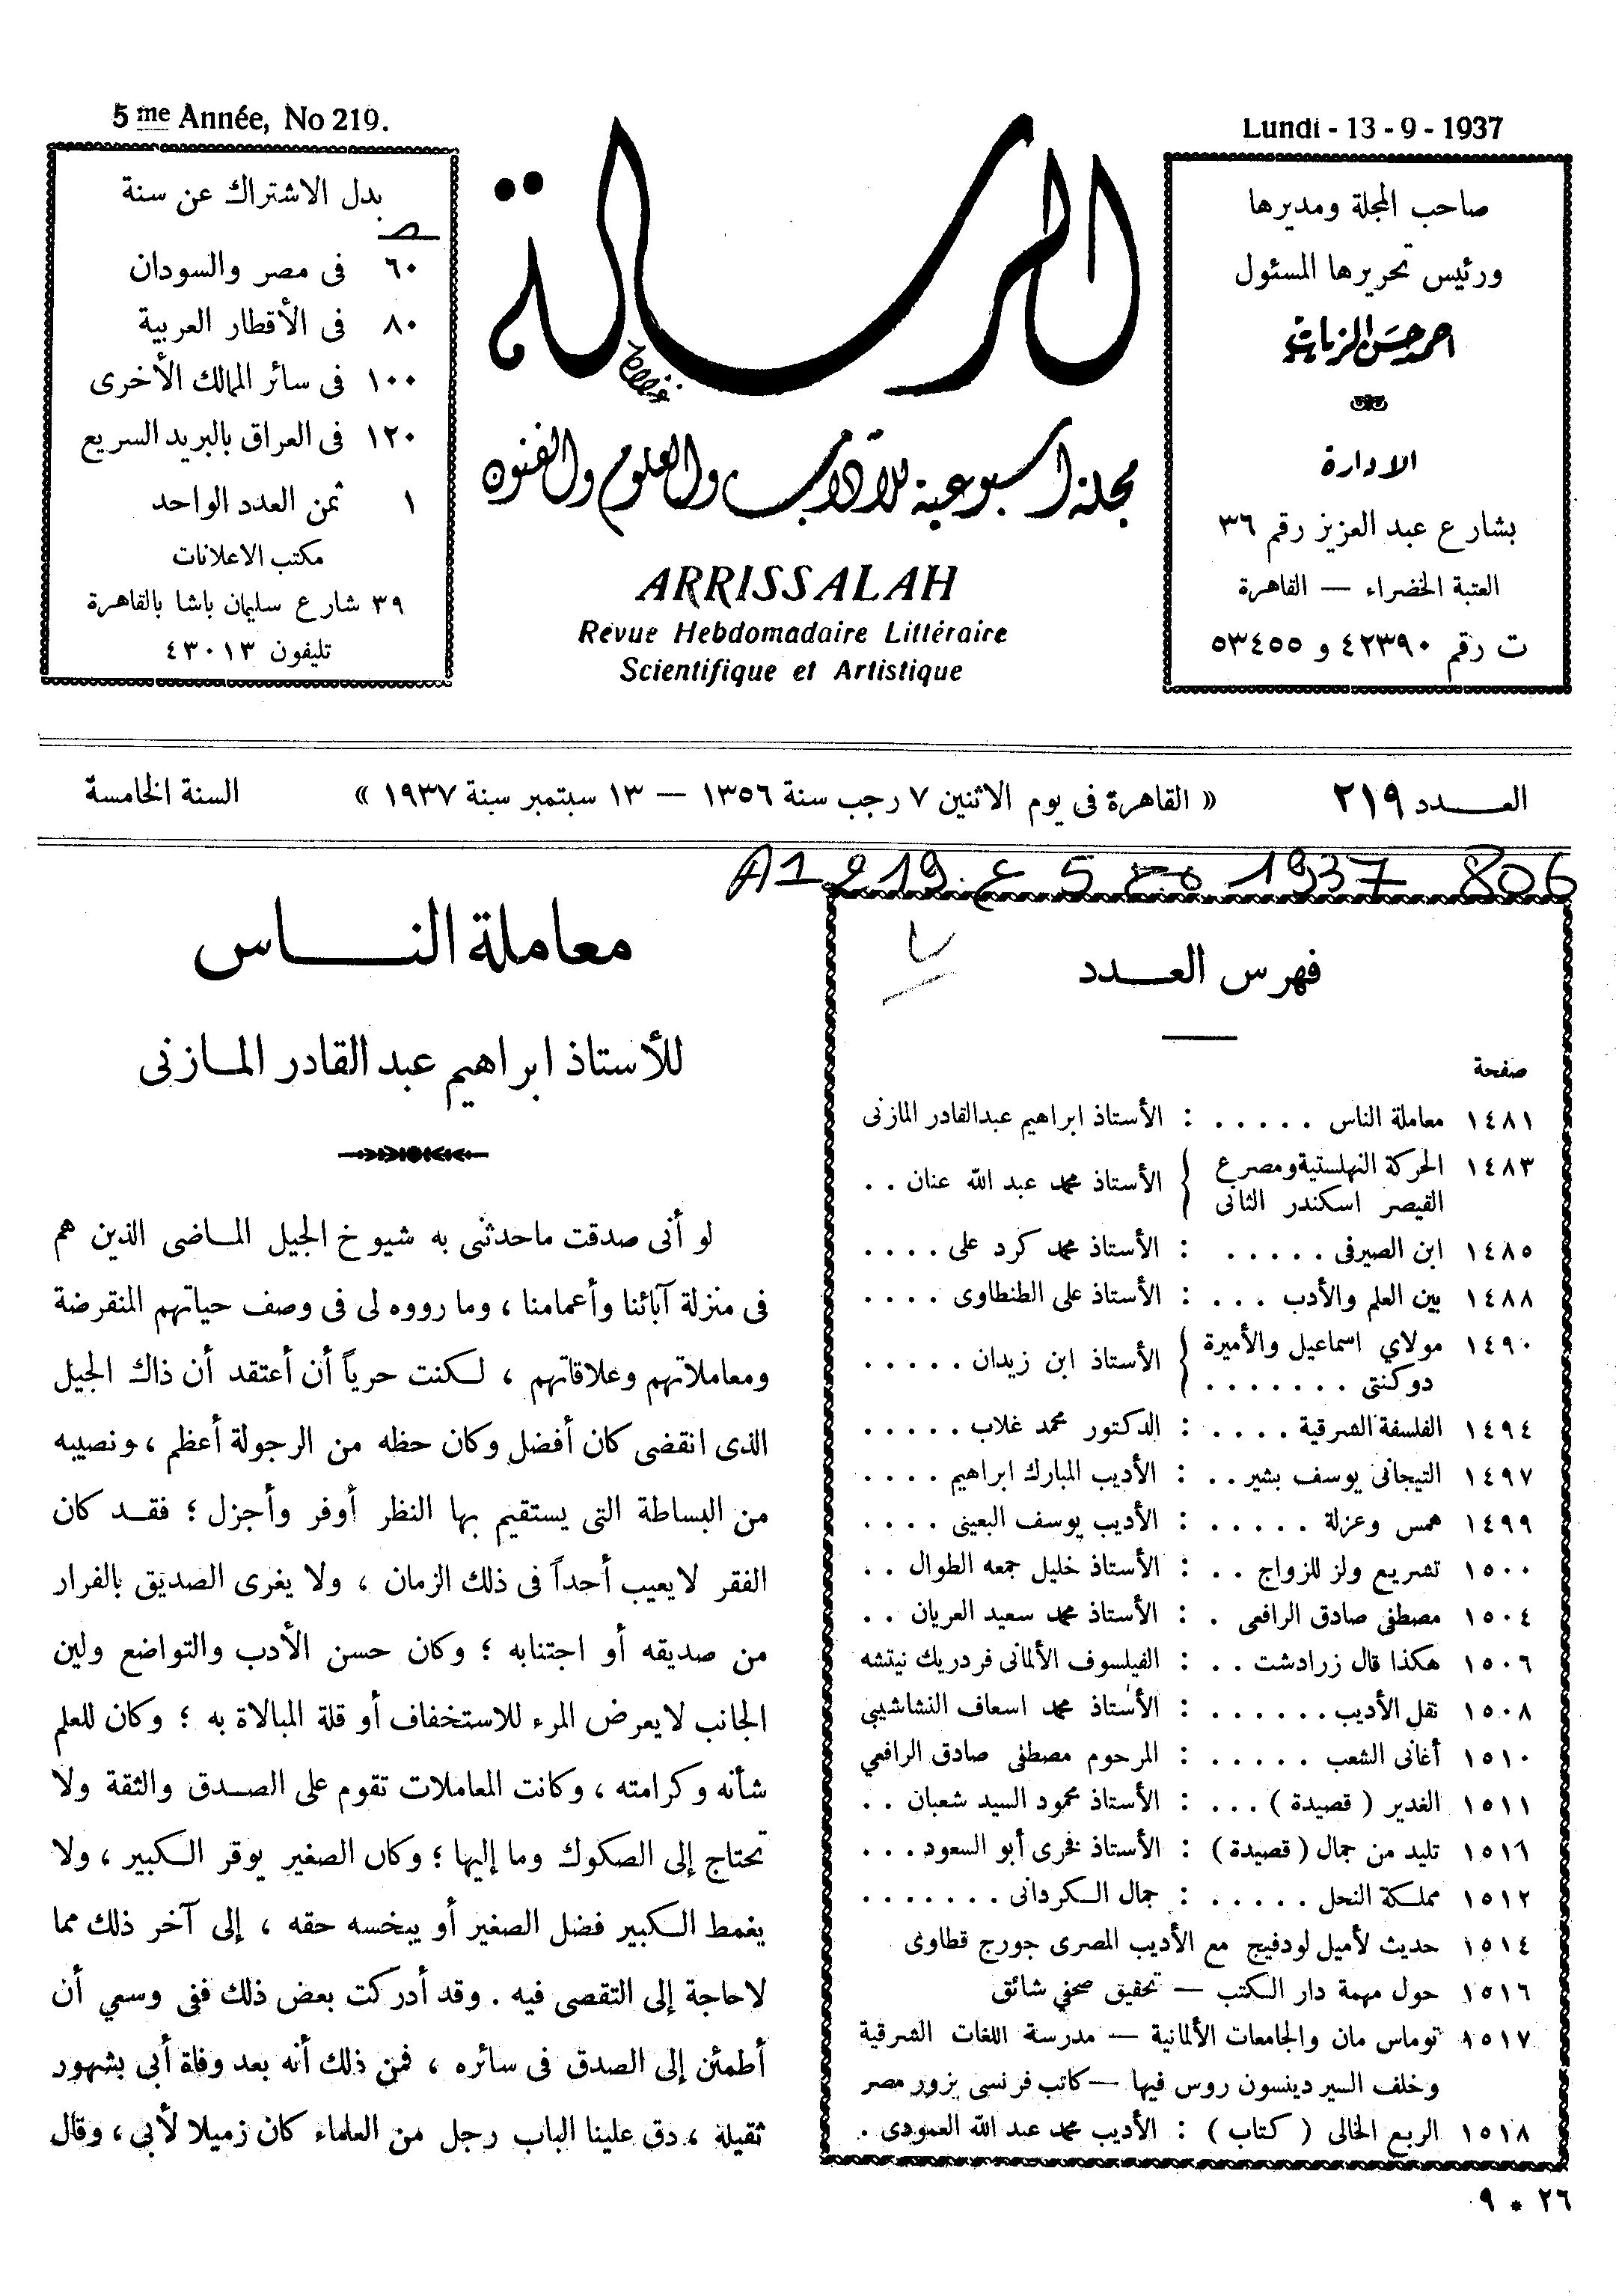 5 me Année, No 219.
Lundi - 13 - 9 - 1937
صاحب المجلة ومديرها
ورئيس تحريرها المسئول
احمد حسن الزيات
الادارة
بشارع عبد العزيز رقم ٣٦
العتبة الخضراء — القاهرة
ت رقم ٤٢٣٩٠ و ٥٣٤٥٥
الرسالة
مجلة اسبوعية للآداب والعلوم والفنون
ARRISSALAH
Revue Hebdomadaire Littéraire
Scientifique et Artistique
بدل الاشتراك عن سنة
ص
٦٠ فى مصر والسودان
٨٠ فى الأقطار العربية
١٠٠ فى سائر الممالك الأخرى
١٢٠ فى العراق بالبريد السريع
١ ثمن العدد الواحد
مكتب الاعلانات
٣٩ شارع سليمان باشا بالقاهرة
تليفون ٤٣٠١٣
العـــدد ٢١٩
« القاهرة فى يوم الاثنين ٧ رجب سنة ١٣٥٦ — ١٣ سبتمبر سنة ١٩٣٧ »
السنة الخامسة
1937 806
فهرس العـــدد
صفحة
١٤٨١ معاملة الناس . . . . . : الأستاذ ابراهيم عبدالقادر المازنى
١٤٨٣ الحركة النهلستية ومصرع
القيصر اسكندر الثانى } الأستاذ محمد عبد الله عنان . .
١٤٨٥ ابن الصيرفى . . . . . : الأستاذ محمد كرد على . . . .
١٤٨٨ بين العلم والأدب . . . : الأستاذ على الطنطاوى . . . .
١٤٩٠ مولاي اسماعيل والأميرة
دوكنتى . . . . . . . } الأستاذ ابن زيدان . . . . .
١٤٩٤ الفلسفة الشرقية . . . . : الدكتور محمد غلاب . . . . .
١٤٩٧ التيجانى يوسف بشير . . : الأديب المبارك ابراهيم . . . .
١٤٩٩ همس وعزلة . . . . . : الأديب يوسف البعينى . . . .
١٥٠٠ تشريع ولز للزواج . . : الأستاذ خليل جمعه الطوال . .
١٥٠٤ مصطفى صادق الرافعى . : الأستاذ محمد سعيد العريان . .
١٥٠٦ هكذا قال زرادشت . . : الفيلسوف الألمانى فردريك نيتشه
١٥٠٨ نقل الأديب . . . . . . : الأستاذ محمد اسعاف النشاشيبي
١٥١٠ أغانى الشعب . . . . . : المرحوم مصطفى صادق الرافعي
١٥١١ الغدير ( قصيدة ) . . . : الأستاذ محمود السيد شعبان . .
١٥١٦ تليد من جمال ( قصيدة ) : الأستاذ فخرى أبو السعود . . .
١٥١٢ مملكة النحل . . . . . : جمال الكردانى . . . . . . .
١٥١٤ حديث لأميل لودفيج مع الأديب المصرى جورج قطاوى
١٥١٦ حول مهمة دار الكتب — تحقيق صحفي شائق
١٥١٧ توماس مان والجامعات الألمانية — مدرسة اللغات الشرقية
وخلف السير دينسون روس فيها — كاتب فرنسى يزور مصر
١٥١٨ الربع الخالى ( كتاب ) : الأديب محمد عبد الله العمودى .
معاملة النـــاس
للأستاذ ابراهيم عبد القادر المـازنى
لو أنى صدقت ماحدثنى به شيوخ الجيل المـاضى الذين هم
فى منزلة آبائنا وأعمامنا ، وما رووه لى فى وصف حياتهم المنقرضة
ومعاملاتهم وعلاقاتهم ، لـكنت حرياً أن أعتقد أن ذاك الجيل
الذى انقضى كان أفضل وكان حظه من الرجولة أعظم ، ونصيبه
من البساطة التى يستقيم بها النظر أوفر وأجزل ؛ فقـد كان
الفقر لايعيب أحداً فى ذلك الزمان ، ولا يغرى الصديق بالفرار
من صديقه أو اجتنابه ؛ وكان حسن الأدب والتواضع ولين
الجانب لايعرض المرء للاستخفاف أو قلة المبالاة به ؛ وكان للعلم
شأنه وكرامته ، وكانت المعاملات تقوم على الصـدق والثقة ولا
تحتاج إلى الصكوك وما إليها ؛ وكان الصغير يوقر الـكبير ، ولا
يغمط الـكبير فضل الصغير أو يبخسه حقه ، إلى آخر ذلك مما
لاحاجة إلى التقصى فيه . وقد أدركت بعض ذلك ففى وسعي أن
أطمئن إلى الصدق فى سائره ، فمن ذلك أنه بعد وفاة أبي بشهور
ثقيلة ، دق علينا الباب رجل من العلماء كان زميلا لأبى ، وقال
٢٦ * ٩